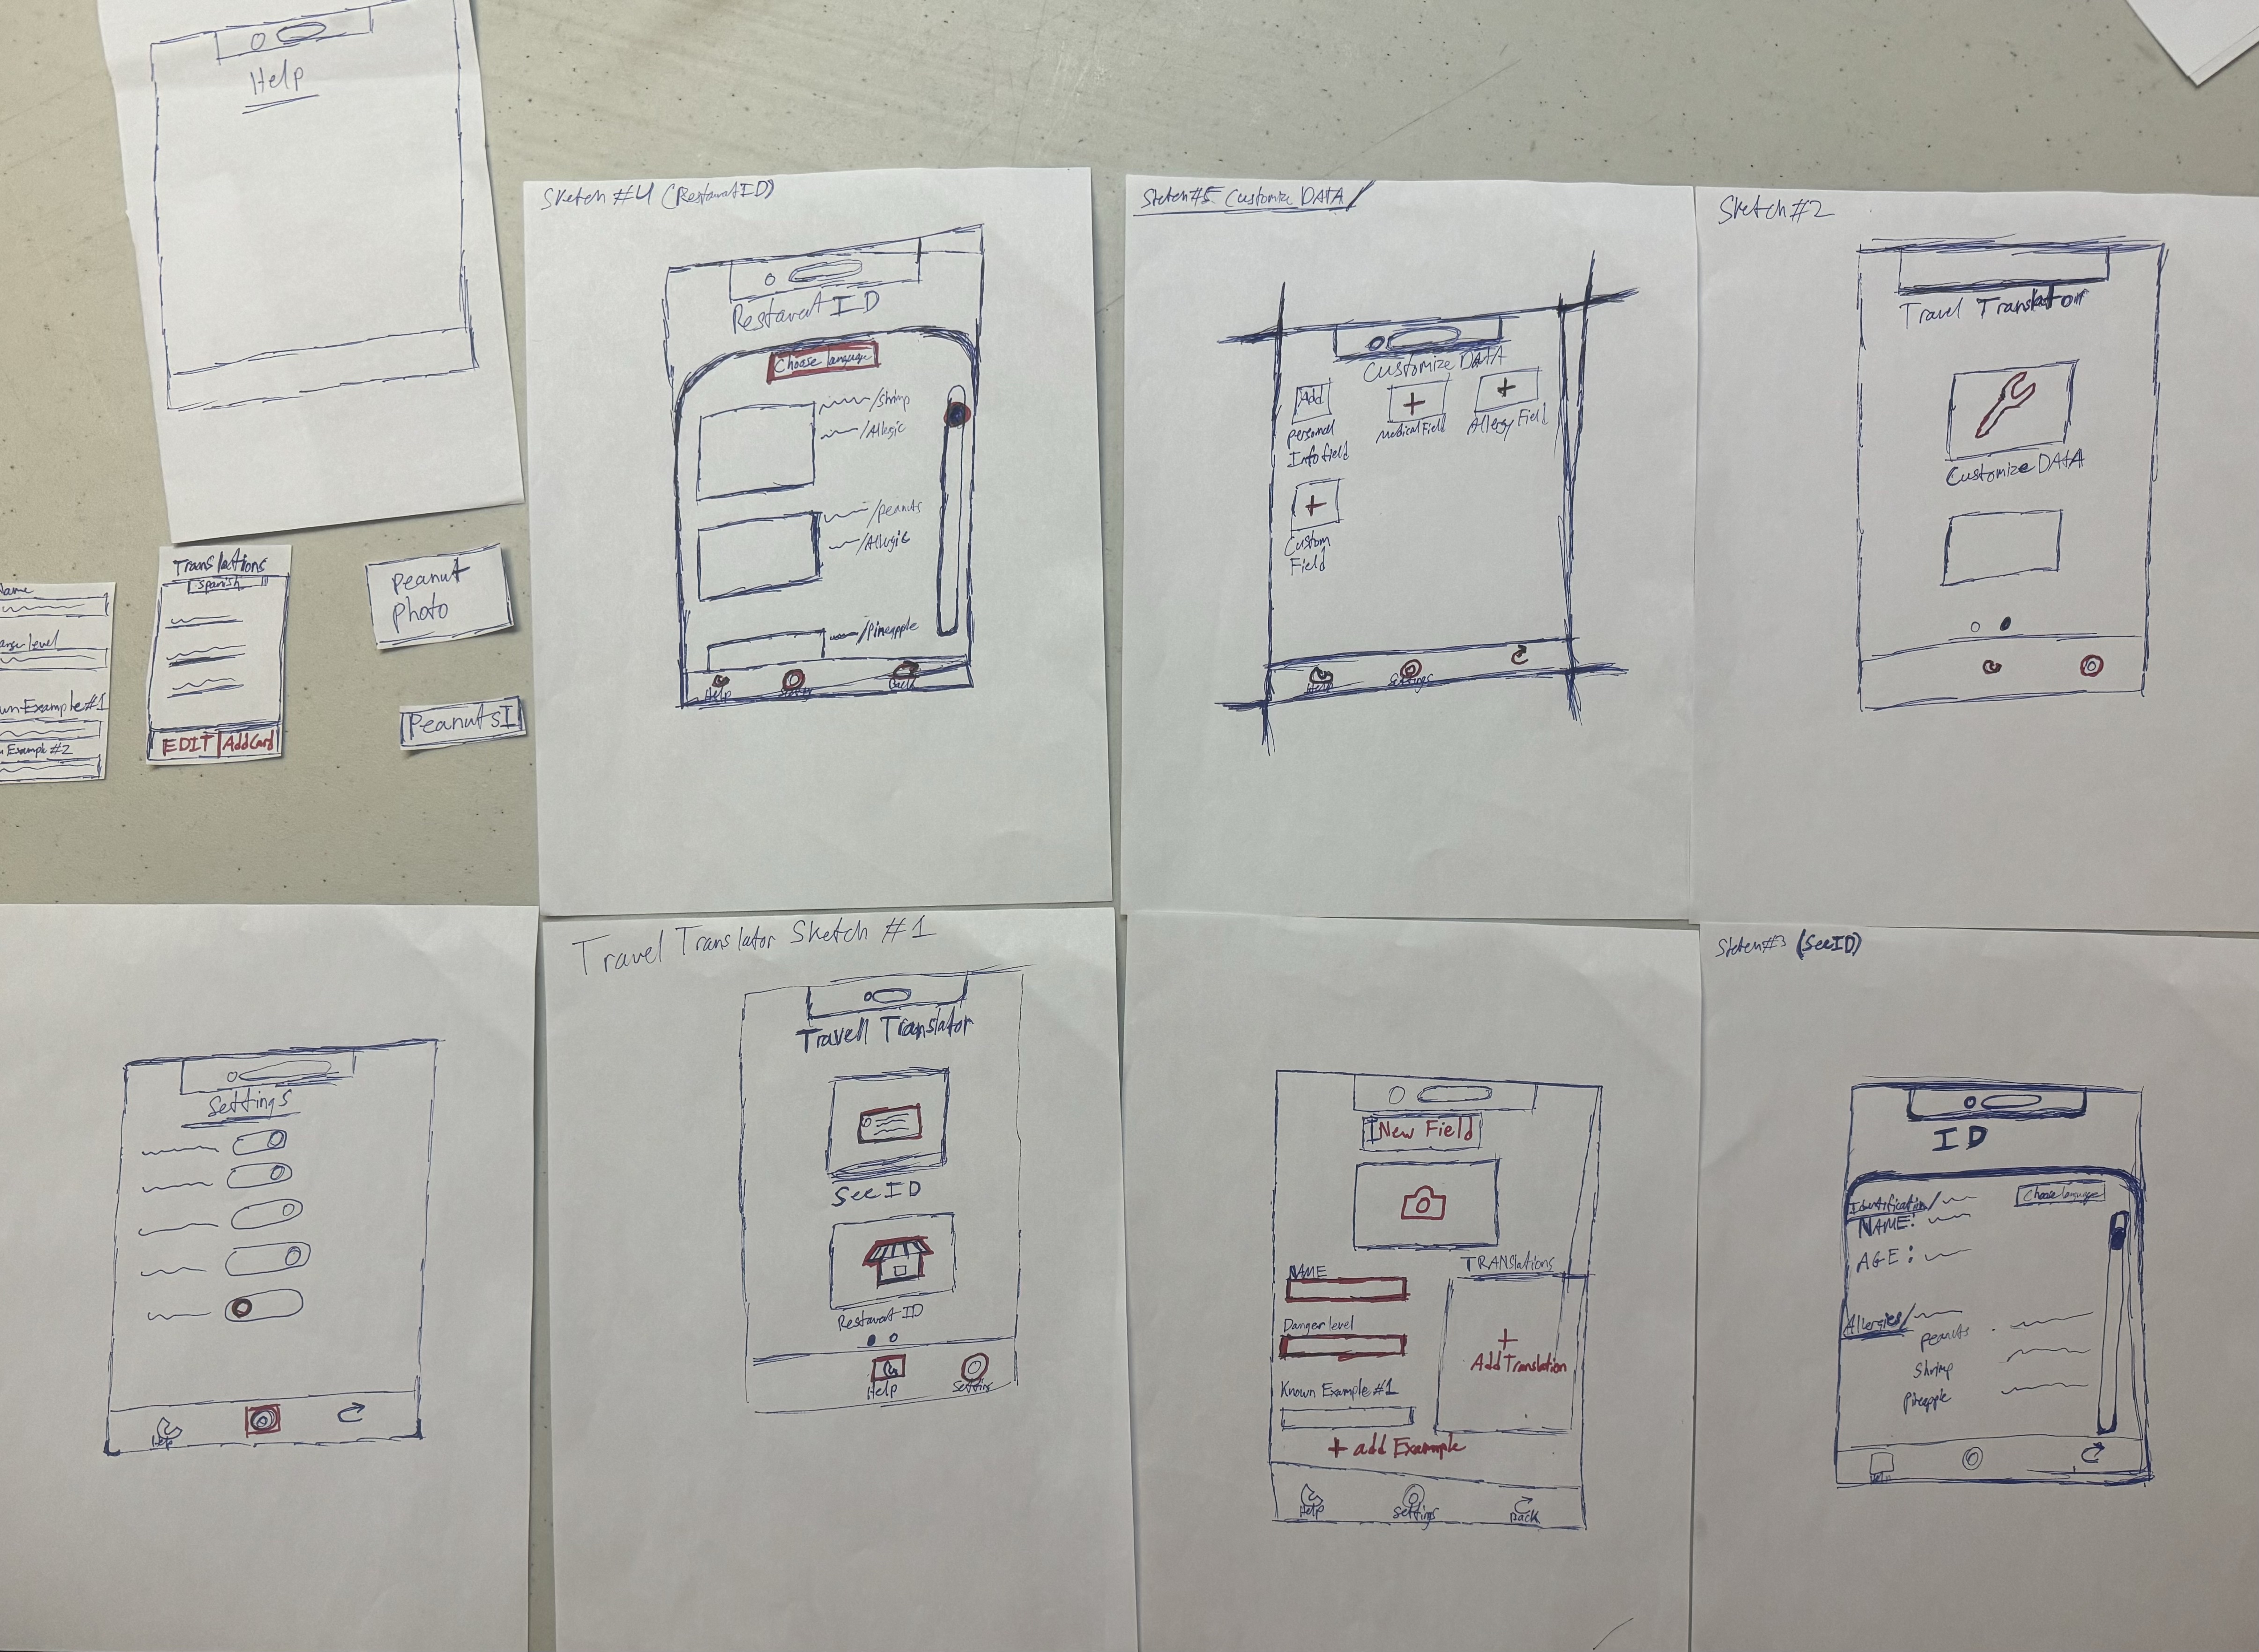 Help
Translations
Spanish
EDIT
Add Card
Peanut
photo
PeanutsI
Name
Example #1
Example #2
Sketch #4 (RestavatID)
Restavat ID
Choose language
/shrimp
/Allergic
/peanuts
/Allergic
/Pineapple
Help
Back
Sketch #5 Customize DATA
Customize DATA
Add
personal
Info field
+
Medical Field
+
Allergy Field
+
Custom
Field
Help
Settings
Sketch #2
Travel Translator
Customize DATA
Settings
Help
Travel Translator Sketch #1
Travell Translator
See ID
Restavat ID
Help
Setting
New Field
NAME
Danger level
Known Example #1
+ add Example
TRANSlations
+
Add Translation
Help
Settings
Back
Sketch #3 (SeeID)
ID
Identification/
Choose language
NAME:
AGE:
Allergies/
peanuts
shrimp
Pineapple